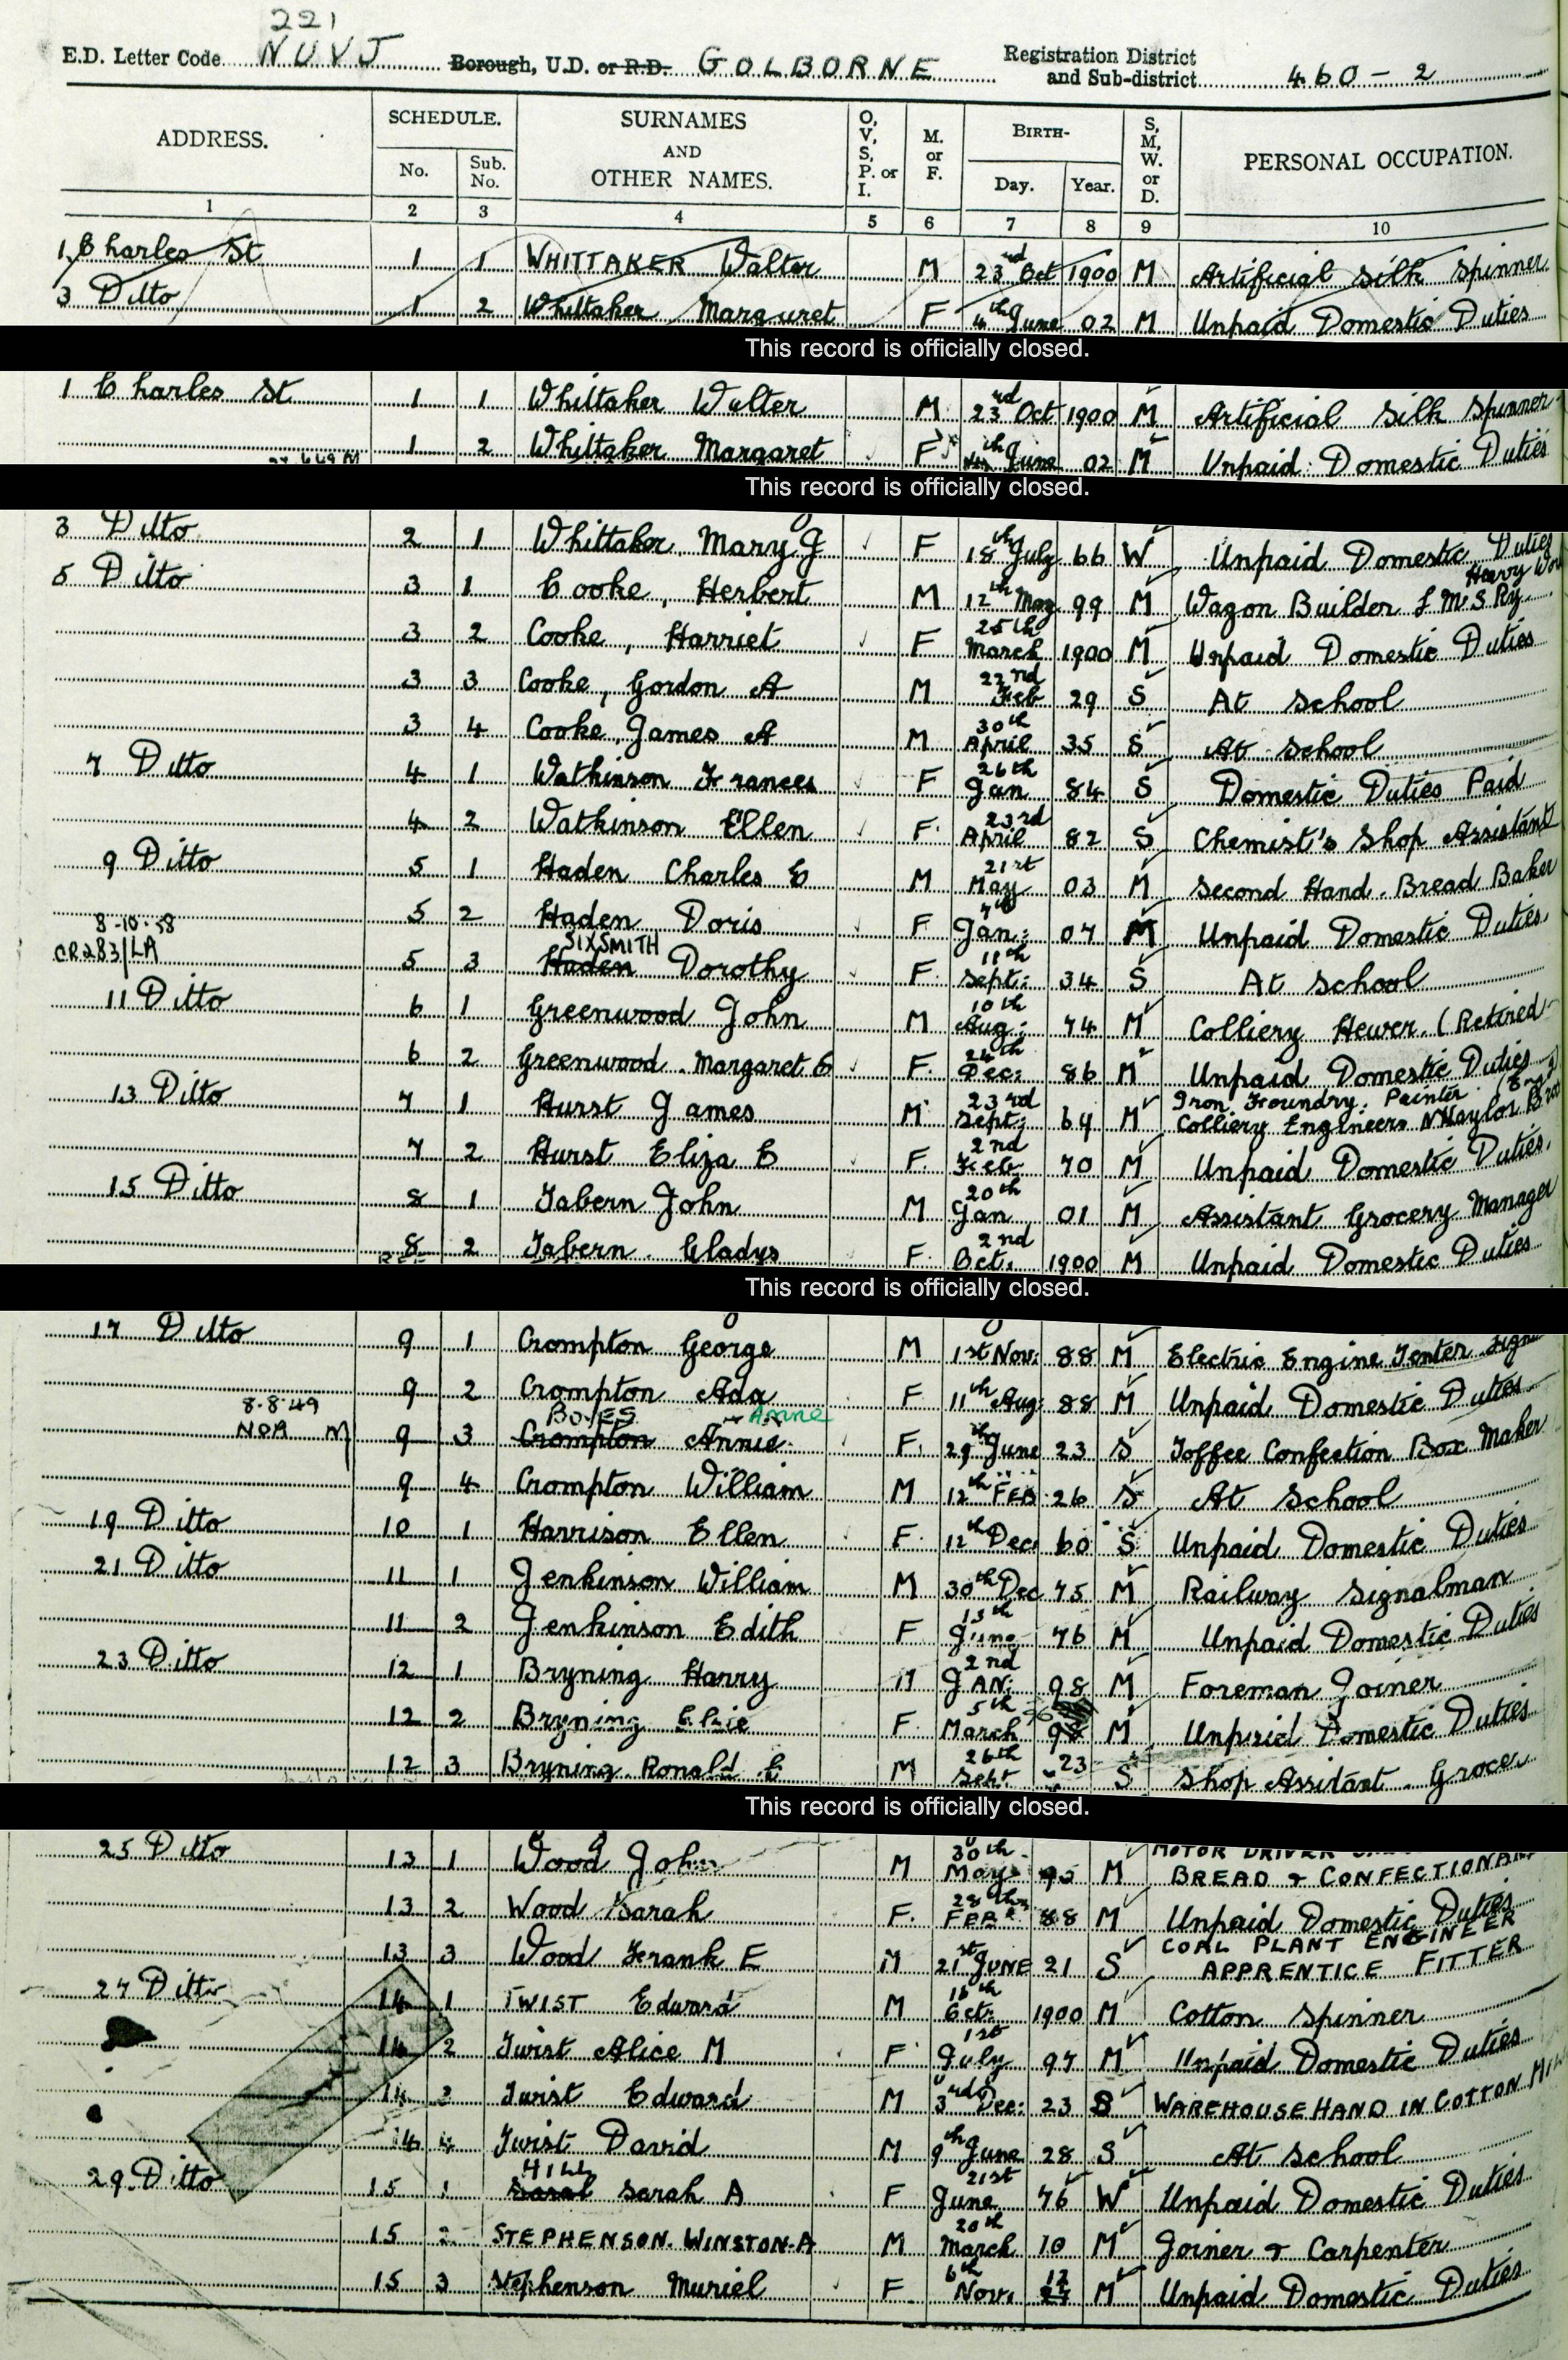 221
E.D. Letter Code NUVJ Borough, U.D. or R.D. GOLBORNE Registration District and Sub-district 460-2
ADDRESS. SCHEDULE. No. Sub. No. SURNAMES AND OTHER NAMES. O, V, S, P. or I. M. or F. BIRTH- Day. Year. S, M, W. or D. PERSONAL OCCUPATION.
1 2 3 4 5 6 7 8 9 10
1 Charles St 1 1 WHITTAKER Walter M 23rd Oct 1900 M Artificial Silk Spinner
3 Ditto 1 2 Whittaker Marguret F 4th June 02 M Unpaid Domestic Duties
This record is officially closed.
1 Charles St 1 1 Whittaker Walter M 23rd Oct 1900 M Artificial Silk Spinner
1 2 Whittaker Margaret F th June 02 M Unpaid Domestic Duties
This record is officially closed.
3 Ditto 2 1 Whittaker, Mary J F 18th July 66 W Unpaid Domestic Duties
5 Ditto 3 1 Cooke, Herbert M 12th May 99 M Wagon Builder L M S Ry. Heavy
3 2 Cooke, Harriet F 25th March 1900 M Unpaid Domestic Duties
3 3 Cooke, Gordon A M 22nd Feb 29 S At School
3 4 Cooke, James A M 30th April 35 S At School
7 Ditto 4 1 Watkinson Frances F 26th Jan 84 S Domestic Duties Paid
4 2 Watkinson Ellen F 23rd April 82 S Chemist's Shop Assistant
9 Ditto 5 1 Haden Charles E M 21st May 03 M Second Hand. Bread Baker
5 2 Haden Doris F 7th Jan: 07 M Unpaid Domestic Duties.
8-10-58 SIXSMITH
CR283/LA 5 3 Haden Dorothy F 11th Sept: 34 S At School
11 Ditto 6 1 Greenwood John M 10th Aug: 74 M Colliery Hewer. (Retired
6 2 Greenwood. Margaret E F 24th Dec: 86 M Unpaid Domestic Duties
13 Ditto 7 1 Hurst James M 23rd Sept: 64 M Iron Foundry. Painter
Colliery Engineers Naylor
7 2 Hurst Eliza E F 2nd Feb 70 M Unpaid Domestic Duties.
15 Ditto 8 1 Tabern John M 20th Jan 01 M Assistant Grocery Manager
8 2 Tabern. Gladys F 2nd Oct. 1900 M Unpaid Domestic Duties
This record is officially closed.
17 Ditto 9 1 Crompton George M 1st Nov: 88 M Electric Engine Tenter
9 2 Crompton Ada F 11th Aug 88 M Unpaid Domestic Duties
8-8-49 BOYES Anne
NOR M 9 3 Crompton Annie F. 29th June 23 S Toffee Confection Box Maker
9 4 Crompton William M 12th FEB 26 S At School
19 Ditto 10 1 Harrison Ellen F 12th Dec. 60 S Unpaid Domestic Duties
21 Ditto 11 1 Jenkinson William M 30th Dec 75 M Railway Signalman
11 2 Jenkinson Edith F 13th June 76 M Unpaid Domestic Duties
23 Ditto 12 1 Bryning Harry M 2nd JAN: 98 M Foreman Joiner
12 2 Bryning Elsie F 5th March M Unpaid Domestic Duties
12 3 Bryning. Ronald M 26th Sept. 23 S Shop Assistant. Grocer
This record is officially closed.
25 Ditto 13 1 Wood John M 30th May M MOTOR DRIVER
BREAD & CONFECTIONARY
13 2 Wood Sarah F. 28th FEB 88 M Unpaid Domestic Duties
13 3 Wood Frank E M 21st JUNE 21 S COAL PLANT ENGINEER
APPRENTICE FITTER
27 Ditto 14 1 TWIST Edward M 16th Oct: 1900 M Cotton Spinner
14 2 Twist Alice M F 1st July 97 M Unpaid Domestic Duties
14 3 Twist Edward M 3rd Dec: 23 S WAREHOUSE HAND IN COTTON MILL
14 4 Twist David M 9th June 28 S At School
HILL
29 Ditto 15 1 Sarah A F 21st June 76 W Unpaid Domestic Duties
15 2 STEPHENSON. WINSTON-A M 20th March 10 M Joiner & Carpenter
15 3 Stephenson Muriel F 6th Nov. 12 M Unpaid Domestic Duties